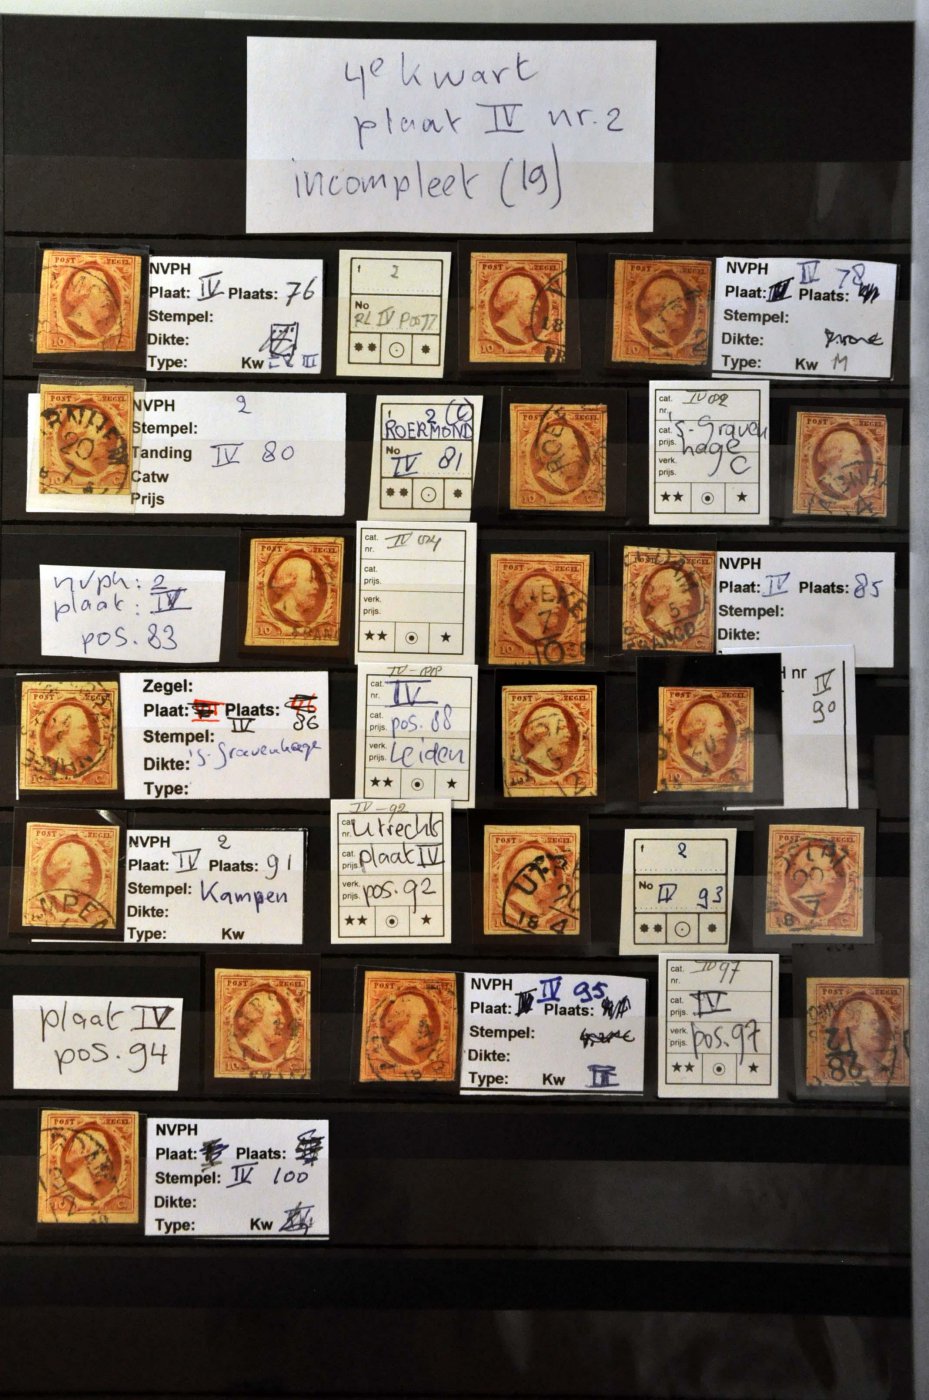 4e kwart
plaat IV nr. 2
incompleet (19)
POST ZEGEL
10 C
NVPH
Plaat: IV Plaats: 76
Stempel:
Dikte:
Type: Kw III
1 2
No
RL IV Pos 77
POST ZEGEL
18
POST ZEGEL
10
NVPH IV 78
Plaat: Plaats:
Stempel:
Dikte:
Type: Kw M
20
NVPH 2
Stempel:
Tanding IV 80
Catw
Prijs
1 2 (C)
ROERMOND
No
IV 81
ROER
cat. nr. IV 082
cat. prijs. 's-Graven
hage
verk. prijs. C
nvph: 2
plaat: IV
pos. 83
POST ZEGEL
10 C
FRAN
cat. nr. IV 084
cat. prijs.
verk. prijs.
POST ZEGEL
10
FRANCO
NVPH
Plaat: IV Plaats: 85
Stempel:
Dikte:
POST ZEGEL
Zegel:
Plaat: Plaats:
IV 86
Stempel:
's-Gravenhage
Dikte:
Type:
IV-088
cat. nr. IV
cat. prijs. pos. 88
verk. prijs. Leiden
POST ZEGEL
POST ZEGEL
H nr
IV
90
POST ZEGEL
MPEN
NVPH 2
Plaat: IV Plaats: 91
Stempel: Kampen
Dikte:
Type: Kw
IV-92
cat. nr. Utrecht
cat. prijs. plaat IV
verk. prijs. pos. 92
POST ZEGEL
UTRE
20
18 4
1 2
No IV 93
POST ZEGEL
plaat IV
pos. 94
POST ZEGEL
10 C
POST ZEGEL
10 C
NVPH IV 95
Plaat: Plaats:
Stempel:
Dikte:
Type: Kw III
cat. nr. IV 97
cat. prijs. IV
verk. prijs. pos. 97
12
POST ZEGEL
NVPH
Plaat: Plaats:
Stempel: IV 100
Dikte:
Type: Kw